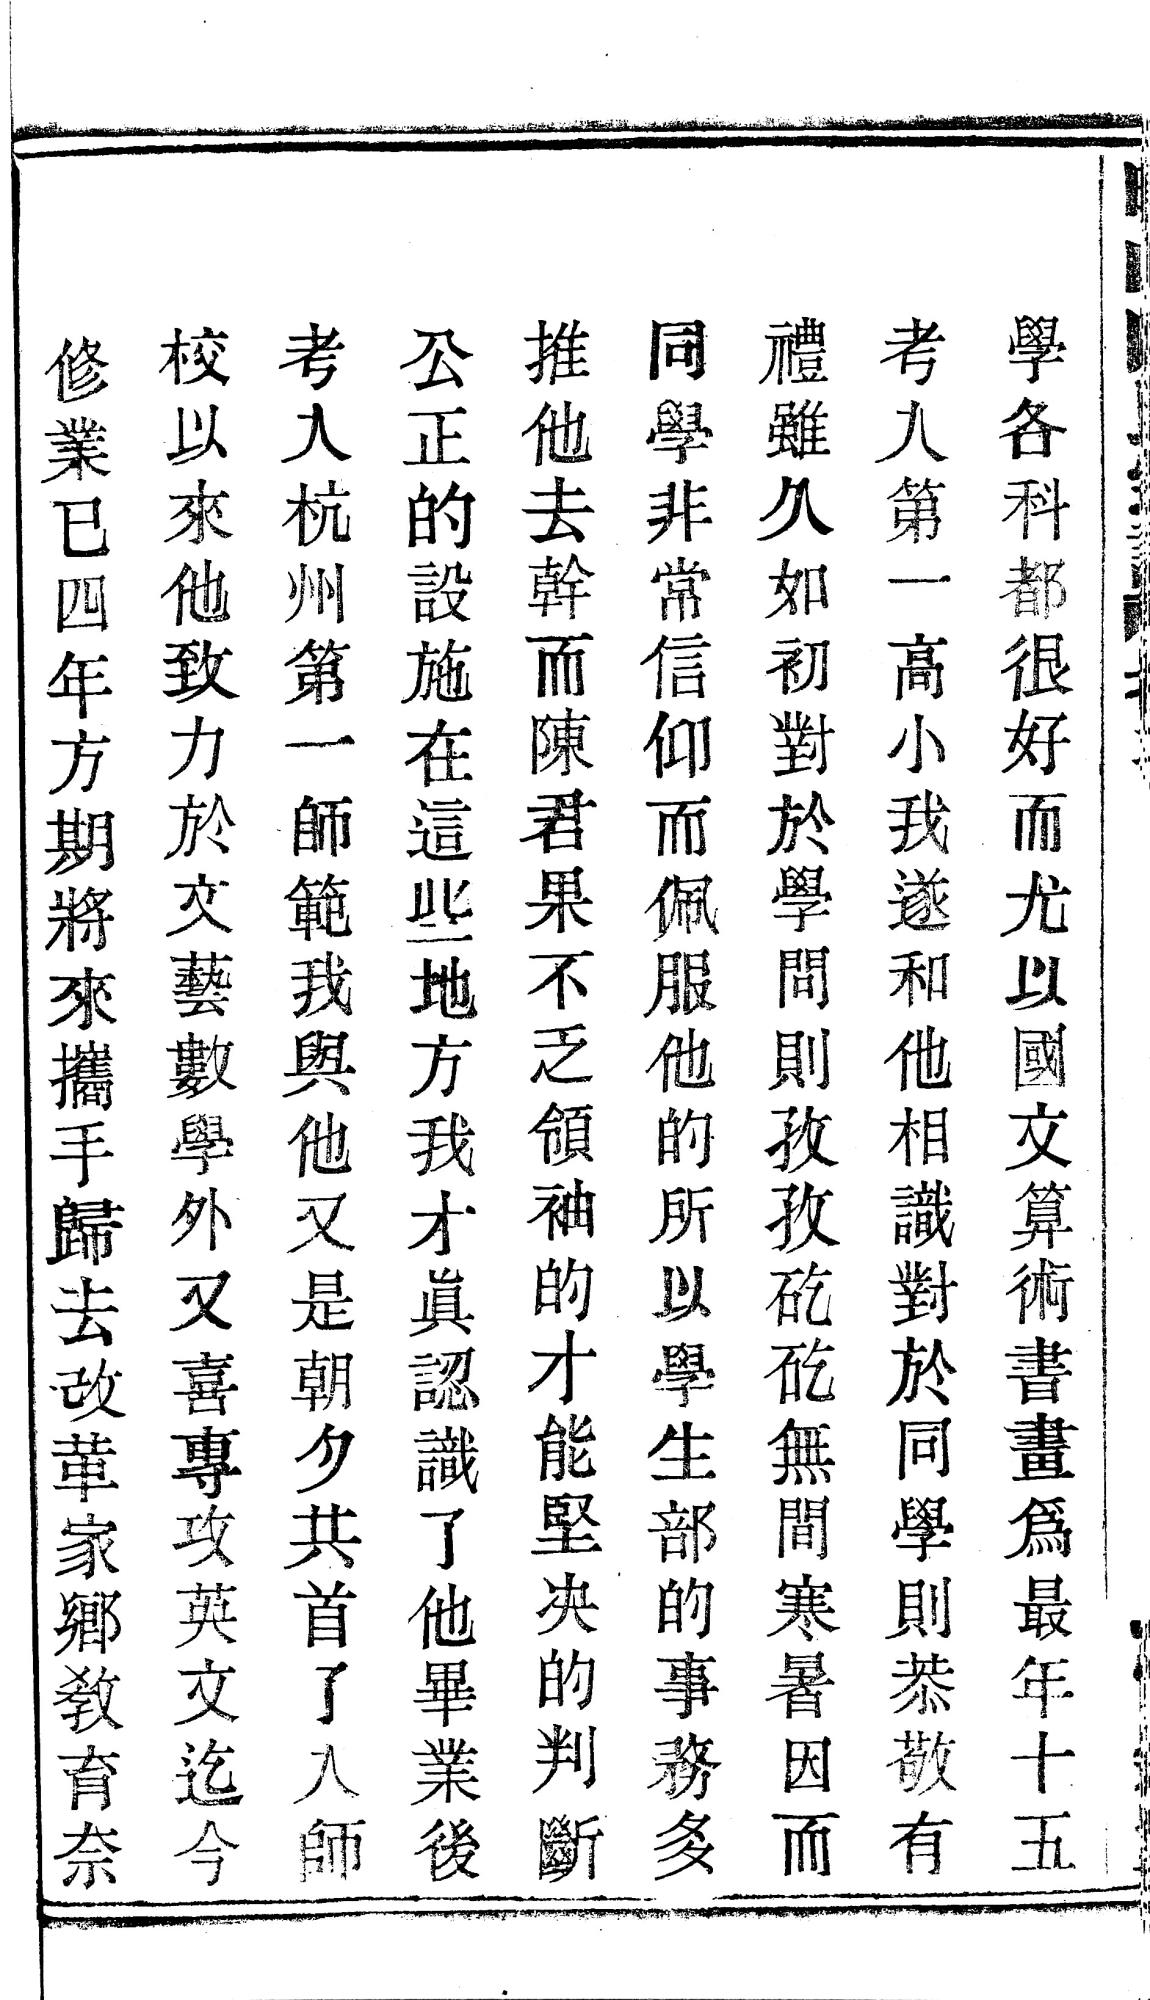 學各科都很好而尤以國文算術書畫爲最年十五
考入第一高小我遂和他相識對於同學則恭敬有
禮雖久如初對於學問則孜孜矻矻無間寒暑因而
同學非常信仰而佩服他的所以學生部的事務多
推他去幹而陳君果不乏領袖的才能堅決的判斷
公正的設施在這些地方我才眞認識了他畢業後
考入杭州第一師範我與他又是朝夕共首了入師
校以來他致力於文藝數學外又喜專攻英文迄今
修業已四年方期將來攜手歸去改革家鄉教育奈